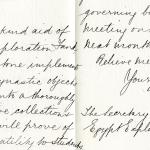 kind aid of
ploration Fund
stone implem
ynastic objects
a thoroughly
ve collections
will prove of
utility to students
governing b
meeting on
next month
Believe me
Yours
The Secretary
Egypt Expl